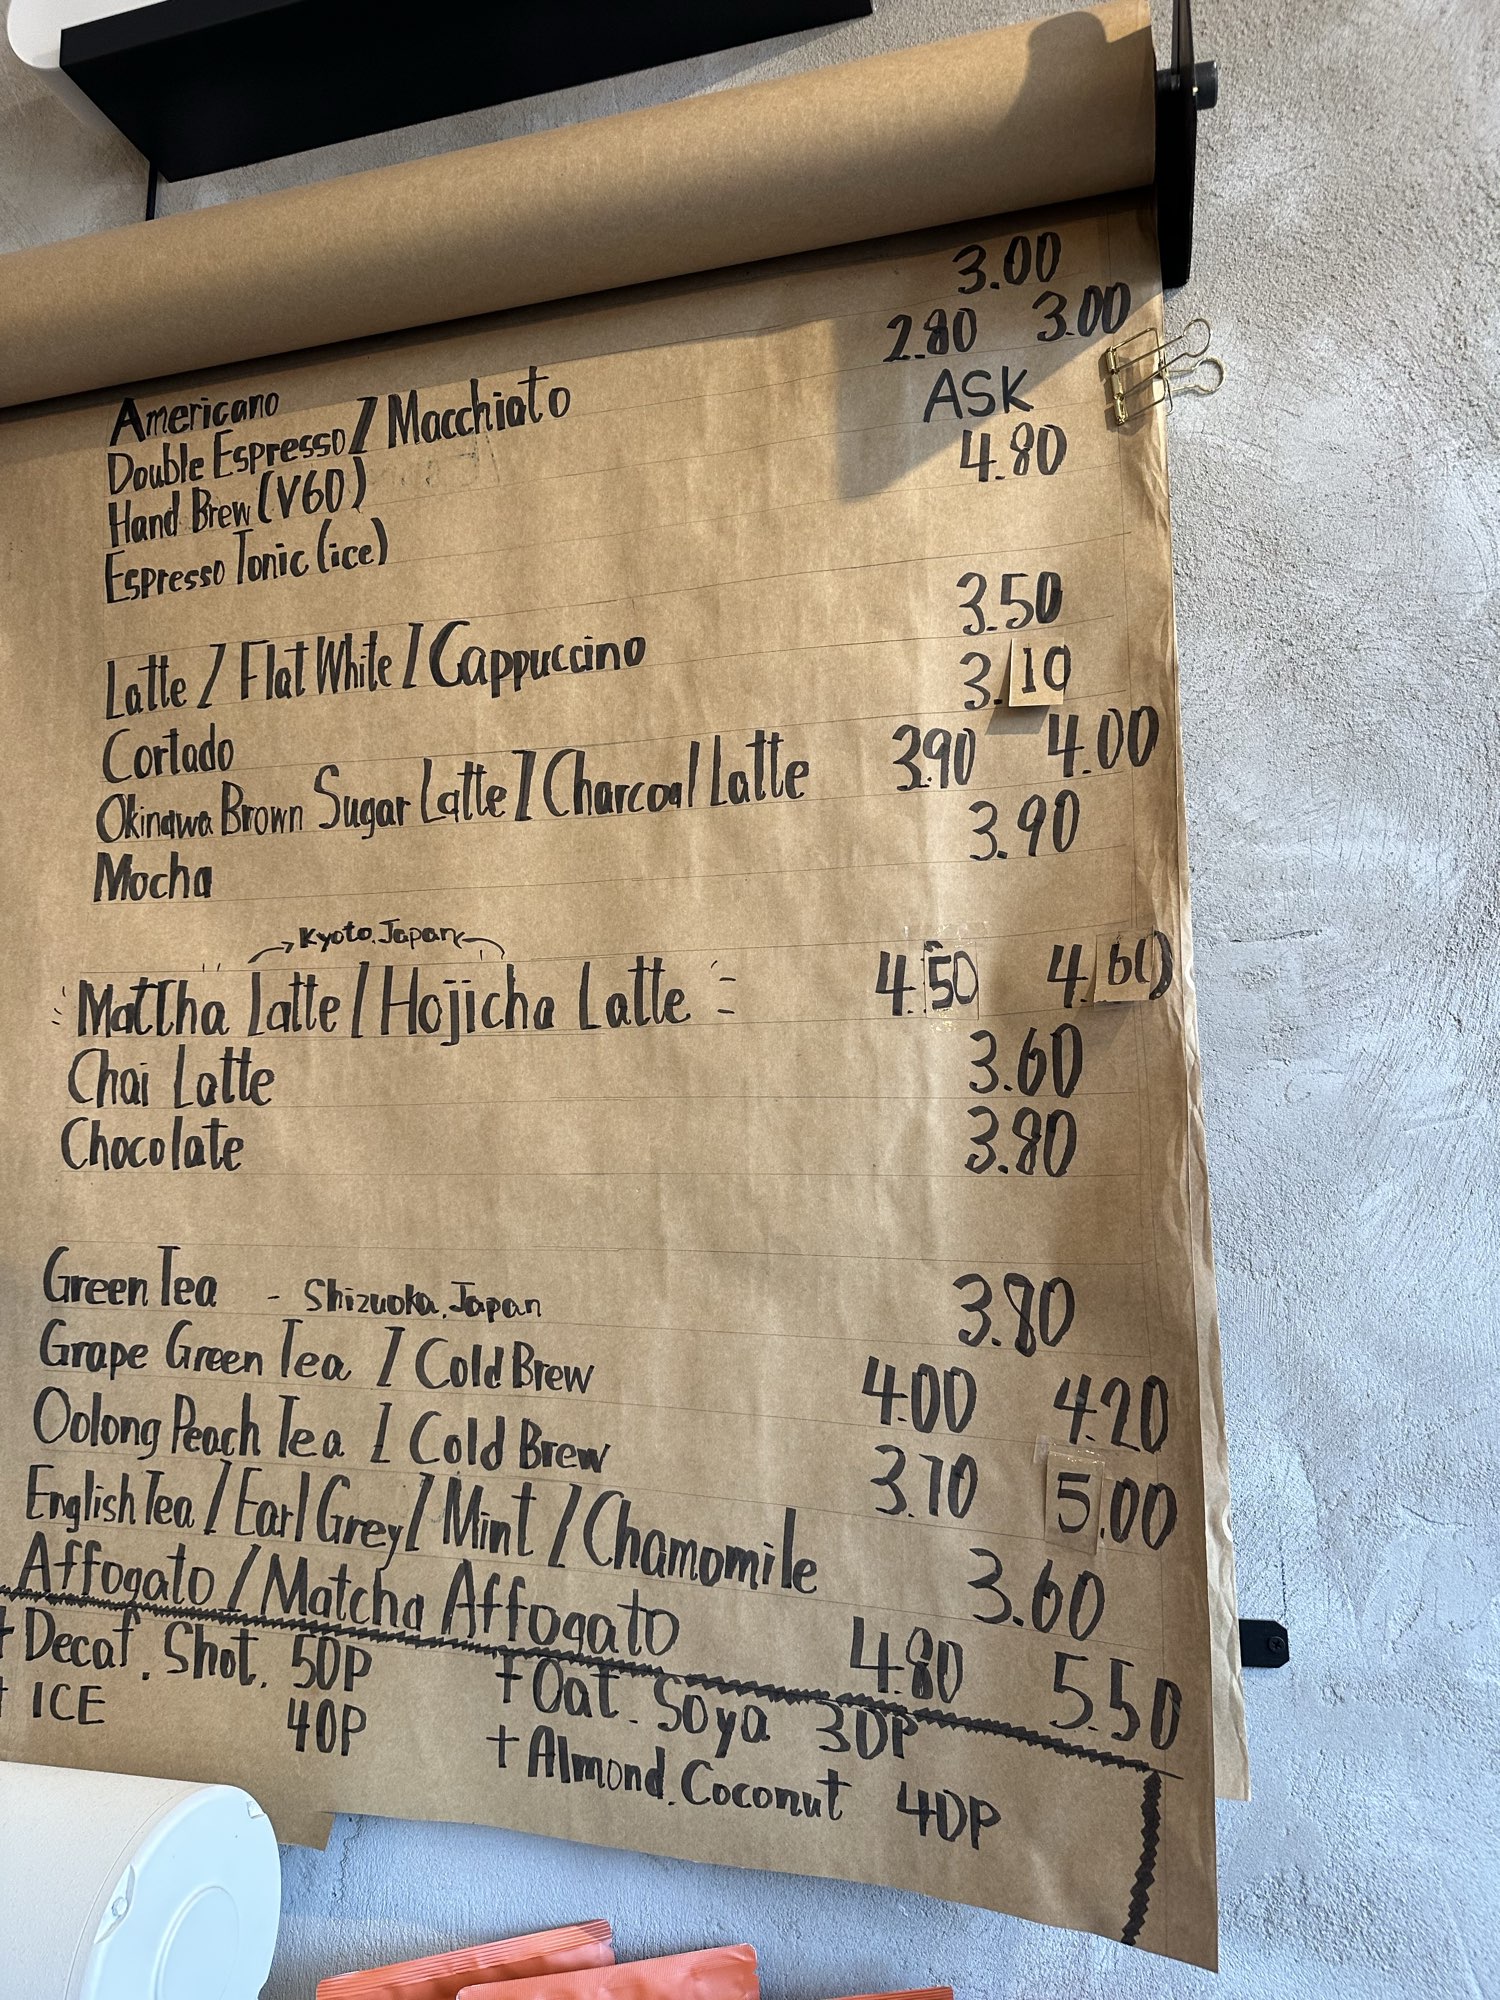 Americano 3.00
Double Espresso / Macchiato 2.80 3.00
Hand Brew (V60) ASK
Espresso Tonic (ice) 4.80
Latte / Flat White / Cappuccino 3.50
Cortado 3.10
Okinawa Brown Sugar Latte / Charcoal Latte 3.90 4.00
Mocha 3.90
Kyoto. Japan
Mattha Latte / Hojicha Latte 4.50 4.60
Chai Latte 3.60
Chocolate 3.80
Green Tea - Shizuoka. Japan 3.80
Grape Green Tea / Cold Brew 4.00 4.20
Oolong Peach Tea / Cold Brew 3.70 5.00
English Tea / Earl Grey / Mint / Chamomile 3.60
Affogato / Matcha Affogato 4.80 5.50
+ Decaf. Shot. 50P + Oat. Soya 30P
+ ICE 40P + Almond. Coconut 40P